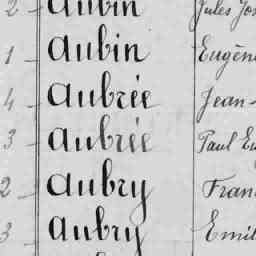 2 Aubin Jules
1 Aubin Eugèn
4 Aubrée Jean-
3 Aubrée Paul Eu
2 Aubry Fran
3 Aubry Emil